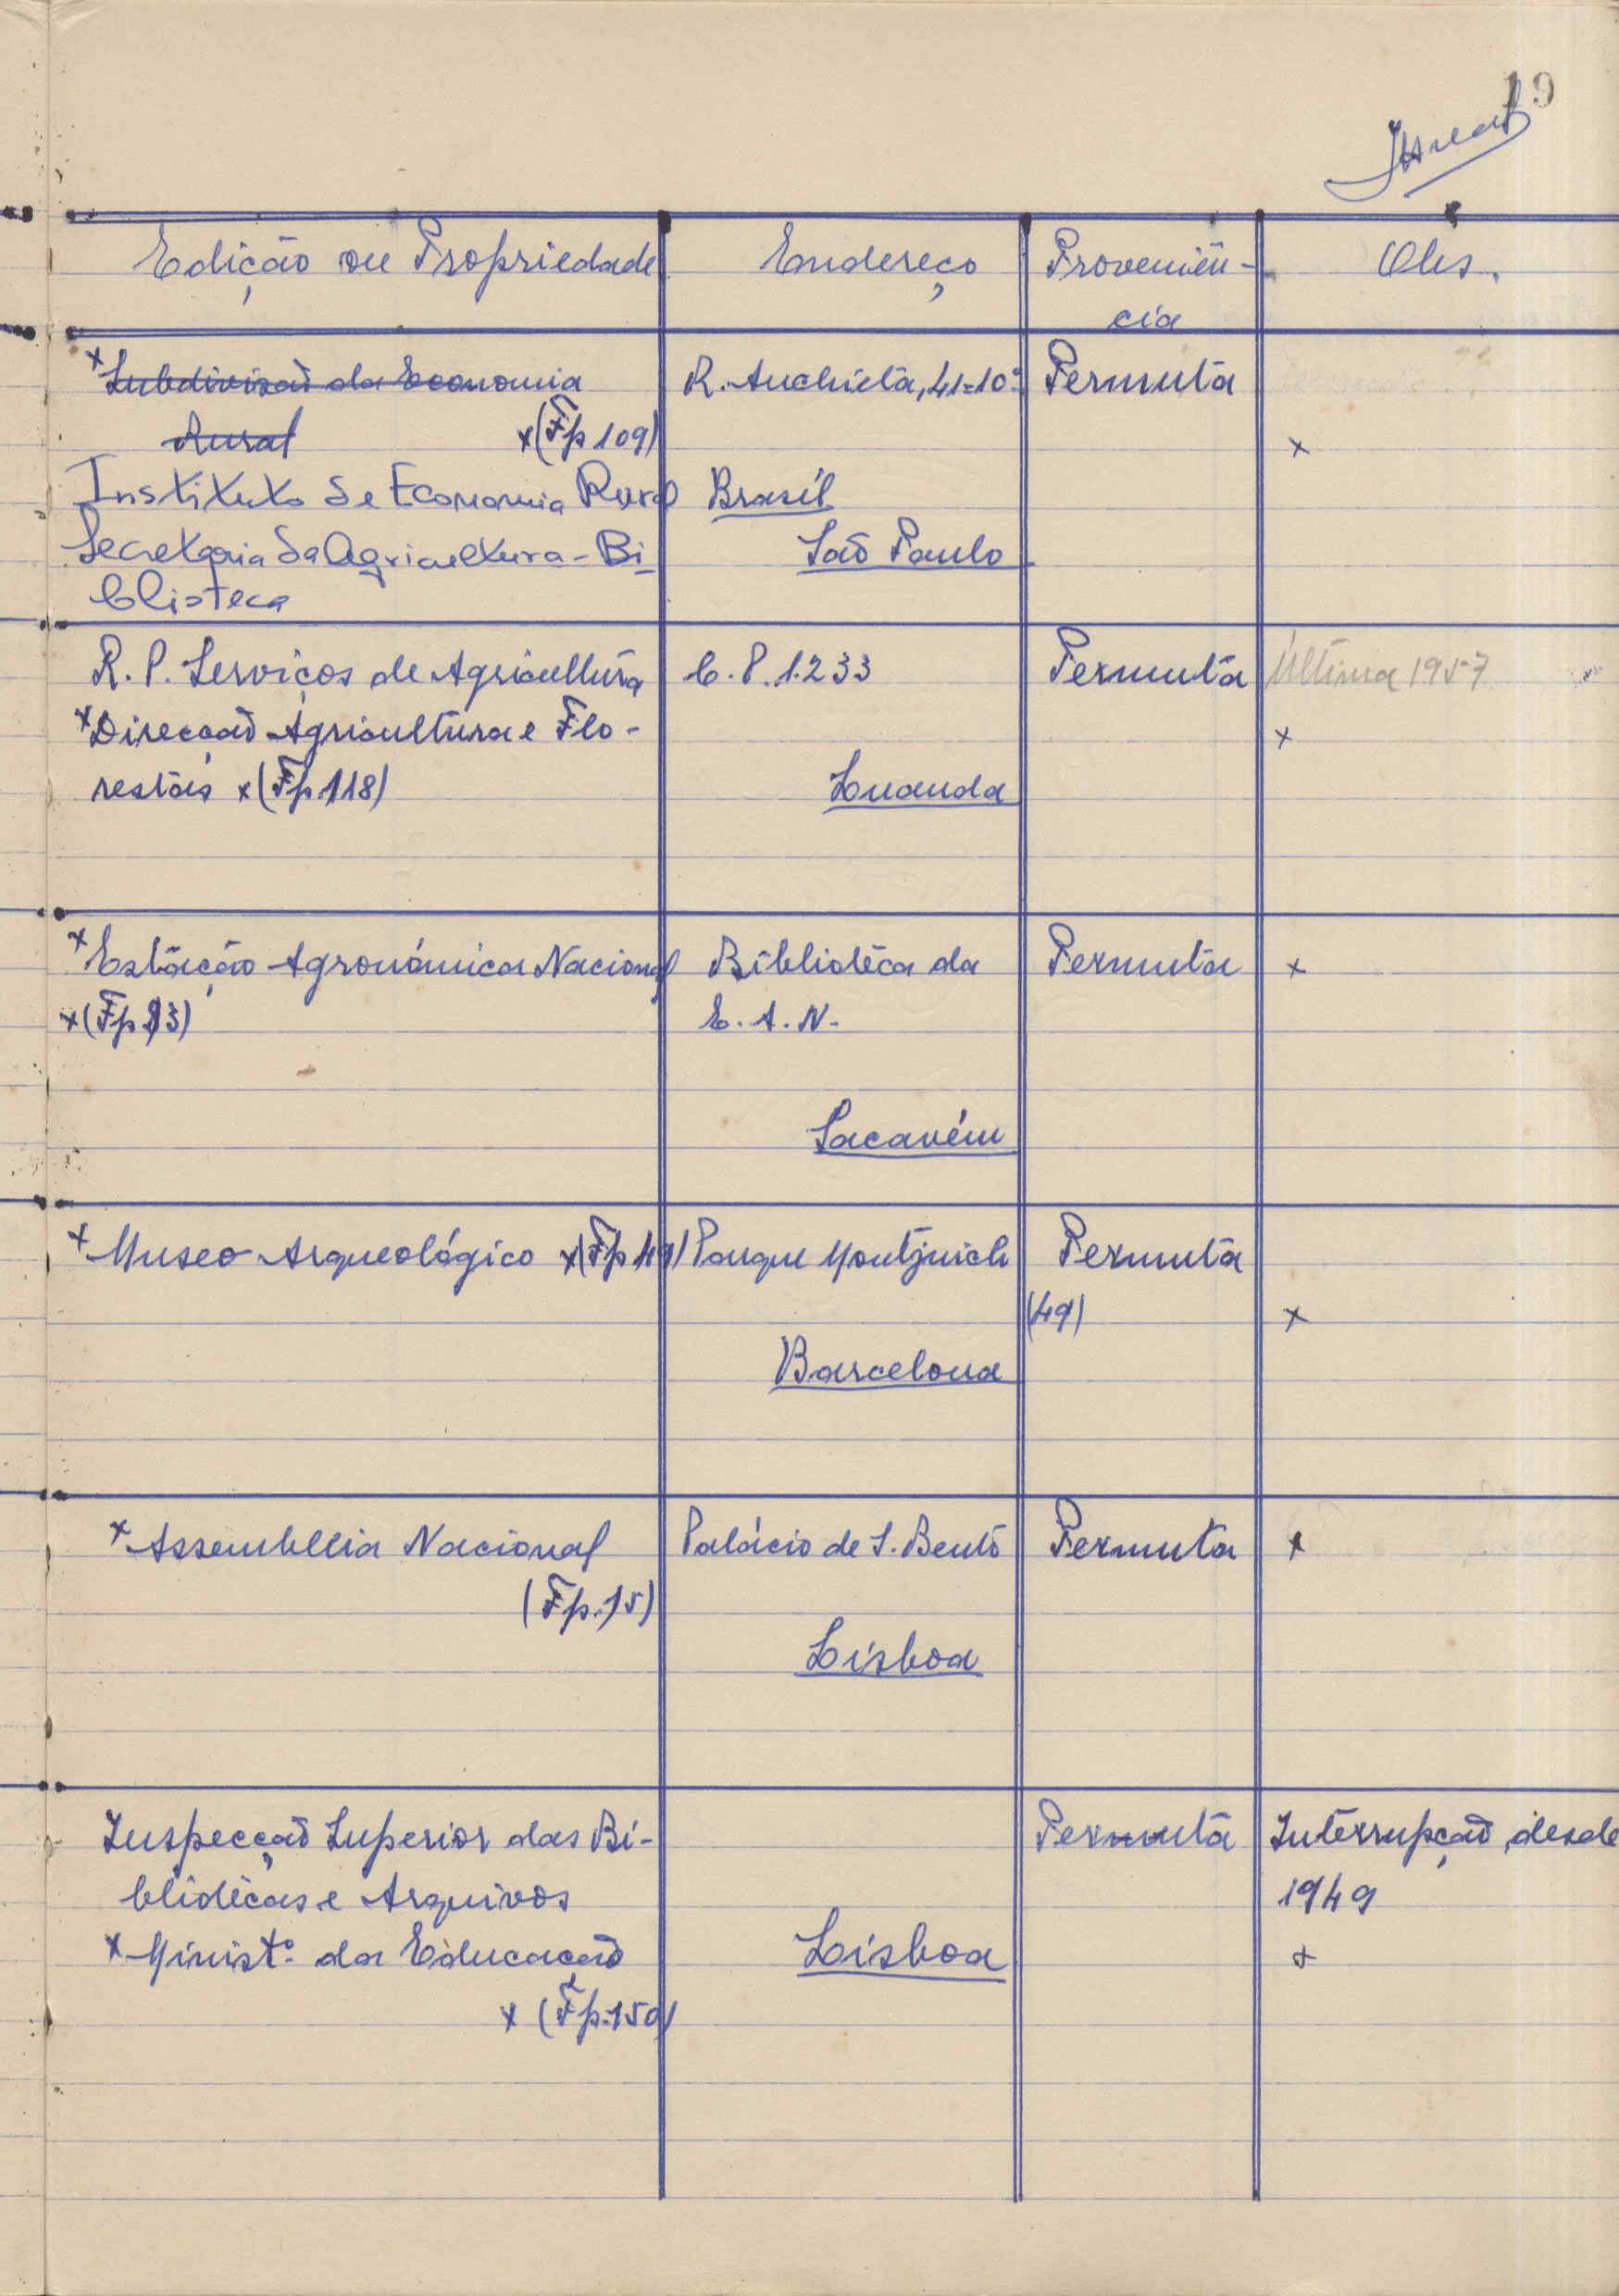 19
Edição ou Propriedade Endereço Proveniên- Obs.
cia
x Subdivisão da Economia R. Anchieta, 41=10º Permuta
Rural x (Fp 109) x
Instituto de Economia Rural Brasil
Secretaria da Agricultura - Bi- São Paulo
blioteca
R. P. Serviços de Agricultura C. P. 1.233 Permuta Última 1957
x Direcção Agricultura e Flo- x
restais x (Fp 118) Luanda
x Estação Agronómica Nacional Biblioteca da Permuta x
x (Fp 93) E. A. N.
Sacavém
x Museo Arqueológico x (Fp 49) Parque Montjuich Permuta
(49) x
Barcelona
x Assembleia Nacional Palácio de S. Bento Permuta x
(Fp. 15)
Lisboa
Inspecção Superior das Bi- Permuta Interrupção desde
bliotecas e Arquivos 1949
x Minist.º da Educação Lisboa x
x (Fp. 150)